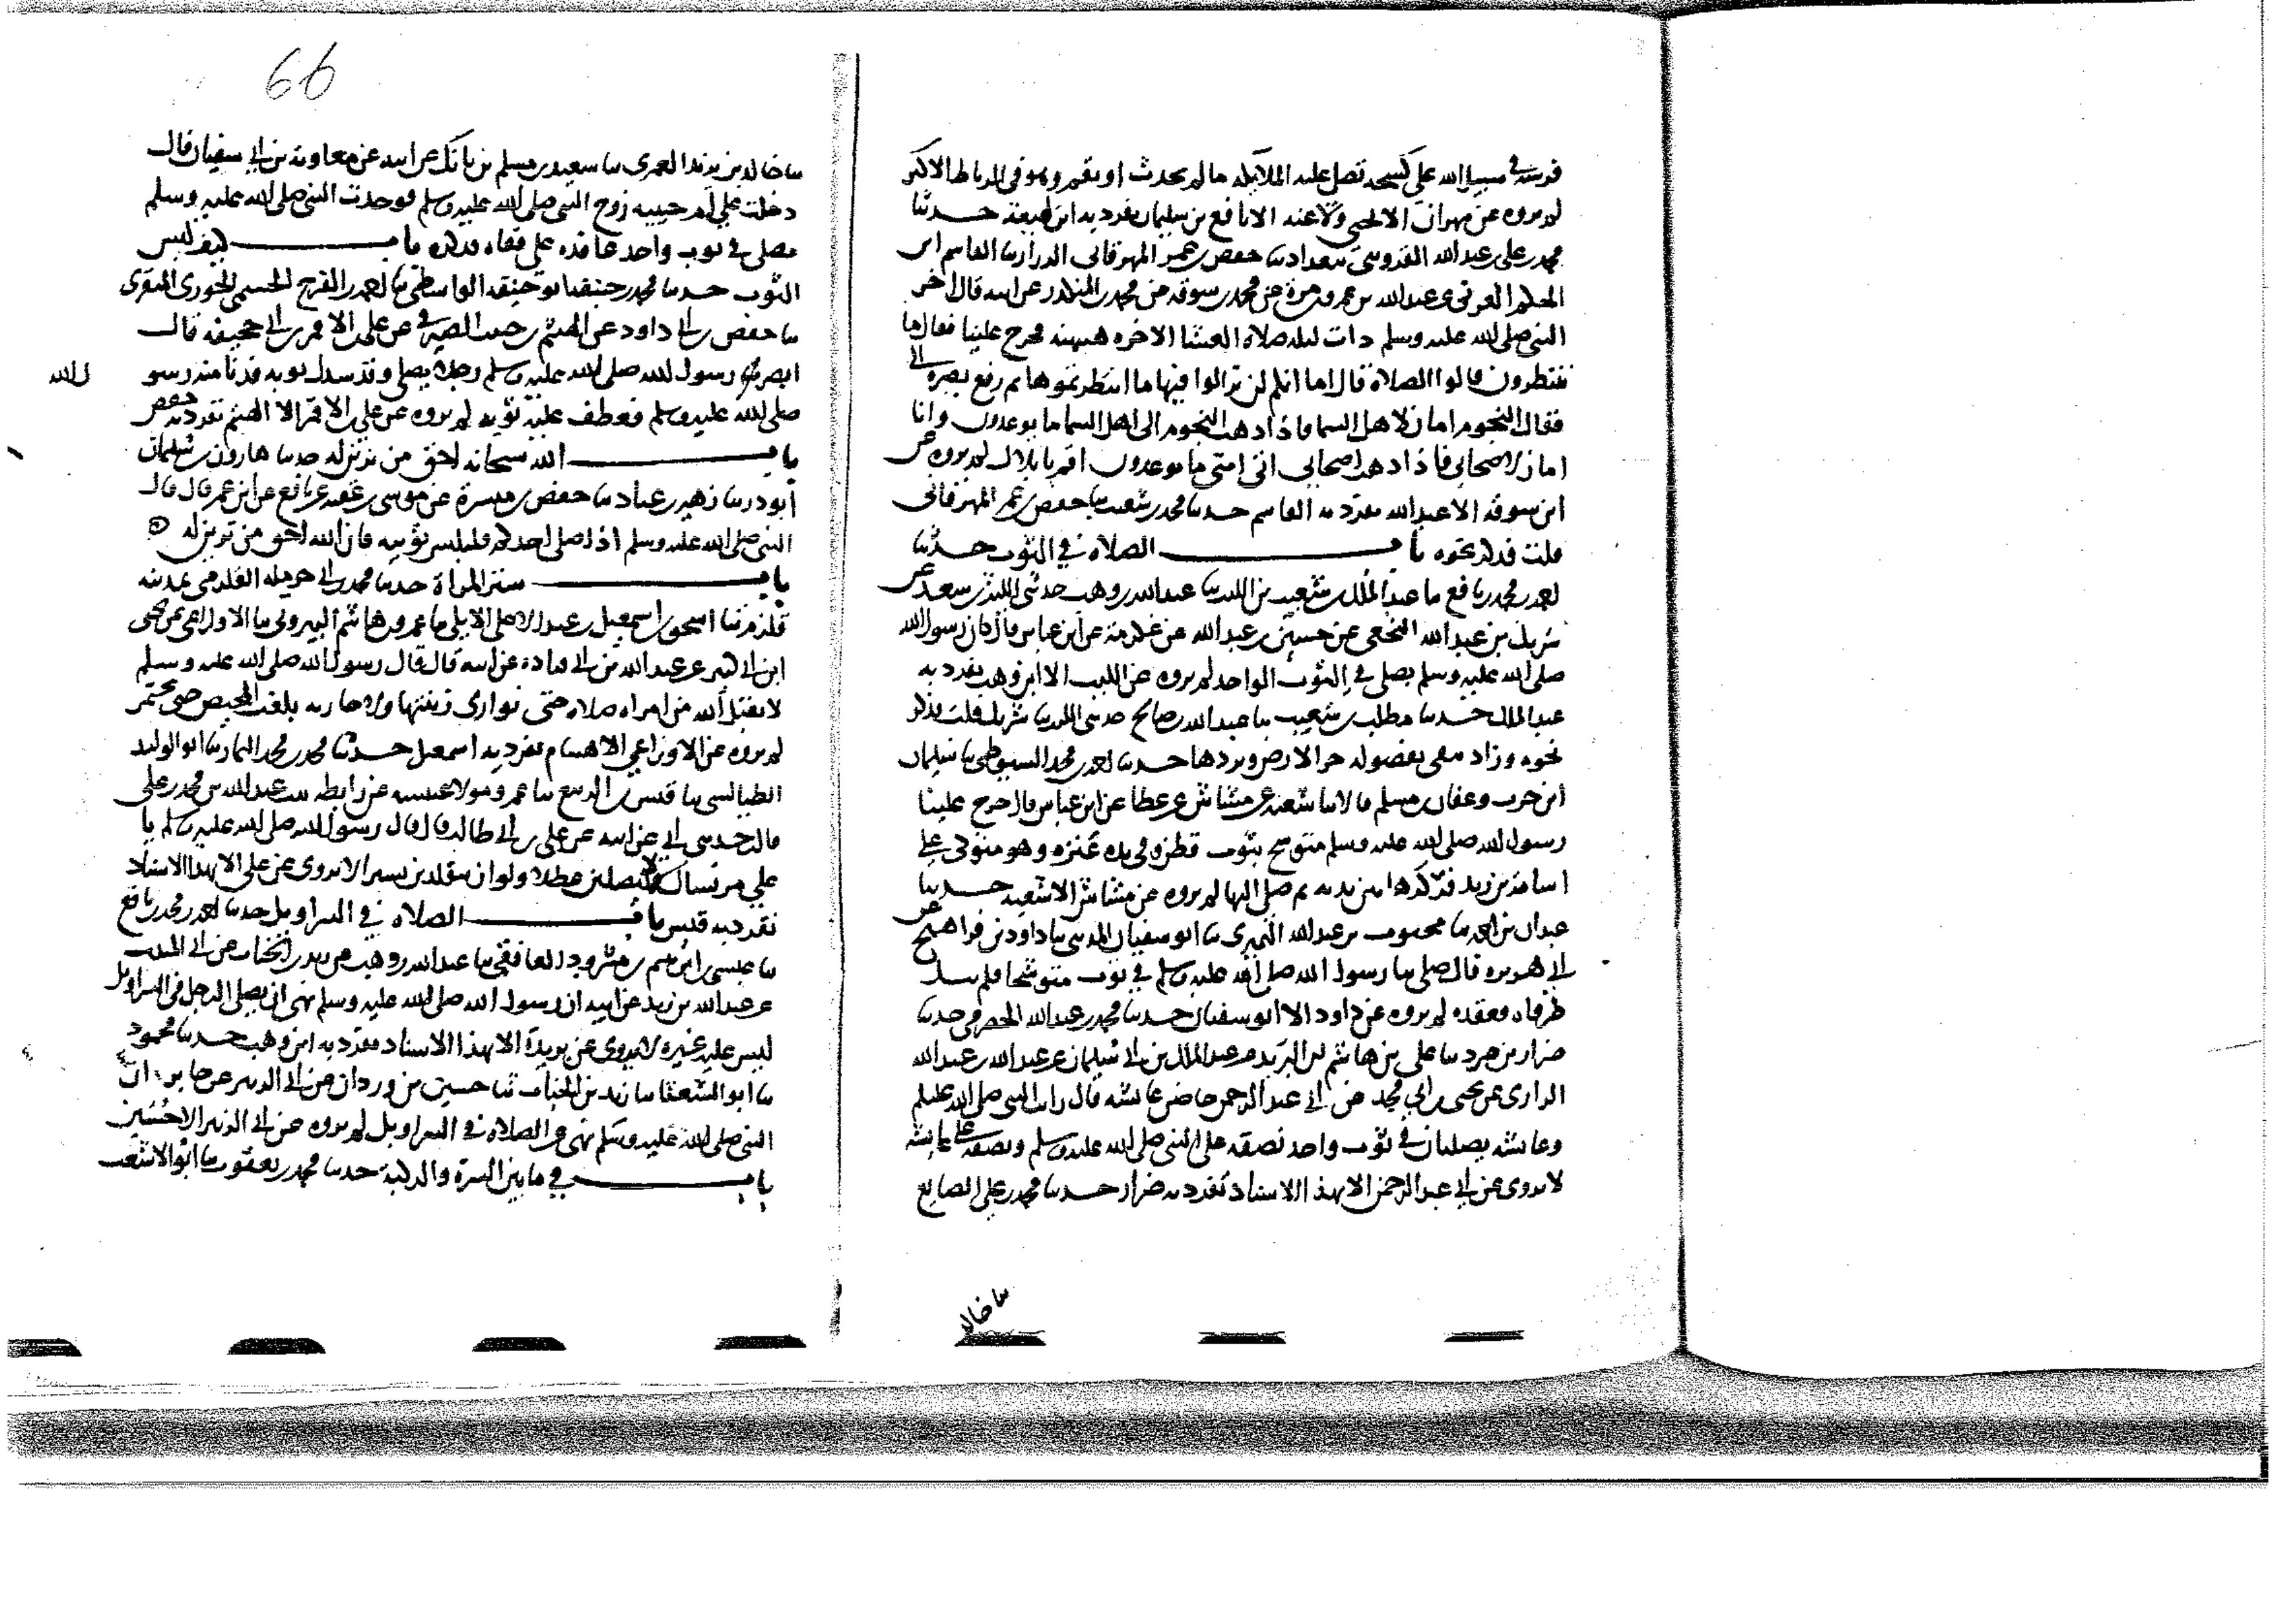 فرسه في سبيل الله على كشحه تصلي عليه الملائكة ما لم يحدث او يقم وهو في الرباط الاكبر
لم يروه عن مهران الالحي ولا عنه الا نافع بن سليمان تفرد به ابن لهيعة حدثنا
محمد بن علي بن عبد الله القدوسي ببغداد ثنا حفص بن عمر المهرقاني الرازي ثنا القاسم ابن
الحكم العرني ثنا عبد الله بن عمرو بن مرة عن محمد بن سوقة عن محمد بن المنكدر عن ابيه قال اخر
النبي صلى الله عليه وسلم ذات ليلة صلاة العشا الاخرة هنيهة فخرج علينا فقال ما
تنتظرون قالوا الصلاة قال اما انكم لن تزالوا فيها ما انتظرتموها ثم رفع بصره الى
فقال النجوم امان لاهل السما فاذا ذهبت النجوم اتى اهل السما ما يوعدون وانا
امان لاصحابي فاذا ذهب اصحابي اتى امتي ما يوعدون اقم يا بلال لم يروه عن
ابن سوقة الا عبد الله تفرد به القاسم حدثنا محمد بن شعيب ثنا حفص بن عمر المهرقاني
قلت فذكر نحوه باب الصلاة في الثوب حدثنا
احمد بن محمد بن نافع ثنا عبد الملك بن شعيب بن الليث ثنا عبد الله بن وهب حدثني الليث بن سعد عن
شريك بن عبد الله النخعي عن حسين بن عبد الله عن عكرمة عن ابن عباس قال كان رسول الله
صلى الله عليه وسلم يصلي في الثوب الواحد لم يروه عن الليث الا ابن وهب تفرد به
عبد الملك حدثنا مطلب بن شعيب ثنا عبد الله بن صالح حدثني الليث ثنا شريك قلت فذكر
نحوه وزاد يتقي بفضوله حر الارض وبردها حدثنا احمد بن محمد السيوطي ثنا سليمان
ابن حرب وعفان بن مسلم قالا ثنا شعبة عن مشاش عن عطا عن ابن عباس قال خرج علينا
رسول الله صلى الله عليه وسلم متوشح بثوب قطن وفي يده عنزة وهو متوكئ على
اسامة بن زيد فركزها بين يديه ثم صلى اليها لم يروه عن مشاش الا شعبة حدثنا
عبدان بن احمد ثنا محبوب بن عبد الله النميري ثنا ابو سفيان المديني ثنا داود بن فراهيج عن
ابي هريرة قال صلى بنا رسول الله صلى الله عليه وسلم في ثوب متوشحا فلم ينل
طرفاه فعقده لم يروه عن داود الا ابو سفيان حدثنا محمد بن عبد الله الحضرمي حدثنا
ضرار بن صرد ثنا علي بن هاشم بن البريد عن عبد الملك بن ابي سليمان عن عبد الله بن عبد الله
الرازي عن يحيى بن ابي محمد عن ابي عبد الرحمن حاضن عائشة قال رايت النبي صلى الله عليه وسلم
وعائشة يصليان في ثوب واحد نصفه على النبي صلى الله عليه وسلم ونصفه على عائشة
لا يروى عن ابي عبد الرحمن الا بهذا الاسناد تفرد به ضرار حدثنا محمد بن علي الصايغ
ثنا خالد
66
ثنا خالد بن يزيد العمري ثنا سعيد بن مسلم بن بانك عن ابيه عن معاوية بن ابي سفيان قال
دخلت على ام حبيبة زوج النبي صلى الله عليه وسلم فوجدت النبي صلى الله عليه وسلم
يصلي في ثوب واحد عاقده على قفاه باب كيف لبس
الثوب حدثنا محمد بن حنيفة ابو حنيفة الواسطي ثنا احمد بن الفرج الجشمي الجوري المقري
ثنا حفص بن ابي داود عن الهيثم بن حبيب الصيرفي عن علي بن الاقمر عن ابي جحيفة قال
ابصر رسول الله صلى الله عليه وسلم رجلا يصلي وقد سدل ثوبه فدنا منه رسو ل الله
صلى الله عليه وسلم فعطف عليه ثوبه لم يروه عن علي بن الاقمر الا الهيثم تفرد به حفص
باب الله سبحانه احق من تزين له حدثنا هارون بن سليمان
ابو ذر ثنا زهير بن عباد ثنا حفص بن ميسرة عن موسى بن عقبة عن نافع عن ابن عمر قال قال
النبي صلى الله عليه وسلم اذا صلى احدكم فليلبس ثوبيه فان الله احق من تزين له
باب ستر المراة حدثنا محمد بن ابي حرملة القلزمي بمدينة
قلزم ثنا اسحق بن اسمعيل بن عبد الاعلى الايلي ثنا عمرو بن هاشم البيروتي ثنا الاوزاعي عن يحيى
ابن ابي كثير عن عبد الله بن ابي قتادة عن ابيه قال قال رسول الله صلى الله عليه وسلم
لا يقبل الله من امراة صلاة حتى تواري زينتها ولا جارية بلغت المحيض حتى تختمر
لم يروه عن الاوزاعي الا هشام تفرد به اسمعيل حدثنا محمد بن محمد التمار ثنا ابو الوليد
الطيالسي ثنا قيس بن الربيع ثنا عمرو مولى عنبسة عن رايطة بنت عبد الله بن محمد بن علي
قالت حدثني ابي عن ابيه عن علي بن ابي طالب قال قال رسول الله صلى الله عليه وسلم يا
علي مر نساك لا يصلين عطلا ولو ان يتقلدن بسير لا يروى عن علي الا بهذا الاسناد
تفرد به قيس باب الصلاة في السراويل حدثنا احمد بن محمد بن نافع
ثنا عيسى بن ابرهيم بن مثرود الغافقي ثنا عبد الله بن وهب عن زيد بن الحباب عن ابي المنيب
عن عبد الله بن بريدة عن ابيه ان رسول الله صلى الله عليه وسلم نهى ان يصلي الرجل في السراويل
ليس عليه غيره لا يروى عن بريدة الا بهذا الاسناد تفرد به ابن وهب حدثنا محمود
ثنا ابو الشعثا ثنا زيد بن الحباب ثنا حسين بن وردان عن ابي الزبير عن جابر ان
النبي صلى الله عليه وسلم نهى عن الصلاة في السراويل لم يروه عن ابي الزبير الا حسين
باب في ما بين السرة والركبة حدثنا محمد بن يعقوب ثنا ابو الاشعث